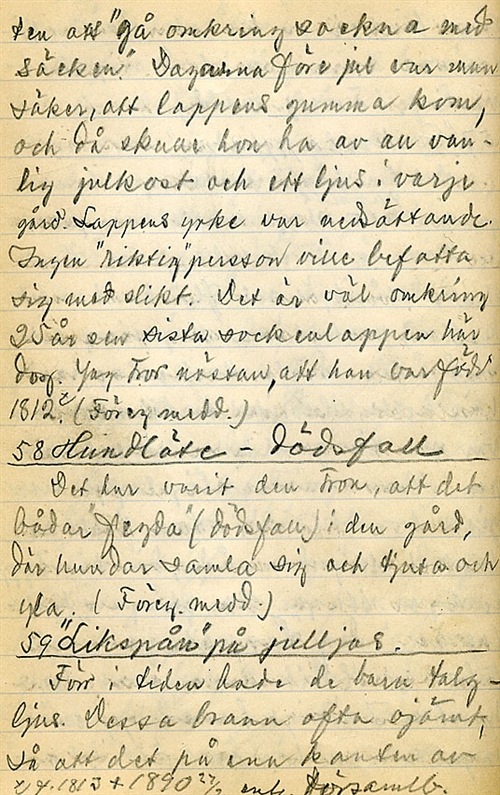 ten att "gå omkring sockna med
säcken." Dagarna före jul var man
säker, att lappens gumma kom,
och då skulle hon ha av all van-
lig julkost och ett ljus i varje
gård. Lappens yrke var nedsättande.
Ingen "riktig" person ville befatta
sig med slikt. Det är väl omkring
25 år sen sista sockenlappen här
dog. Jag tror nästan, att han var född
1812. (Föreg. medd.)
58 Hundläte - dödsfall
Det har varit den tron, att det
bådar "fegda" (dödsfall) i den gård,
där hundar samla sig och tjuta och
yla. (Föreg. medd.)
59 "Likspån" på julljus.
Förr i tiden hade de bara talg-
ljus. Dessa brann ofta ojämt,
så att det på ena kanten av
1813 + 1890 enl. församlb.